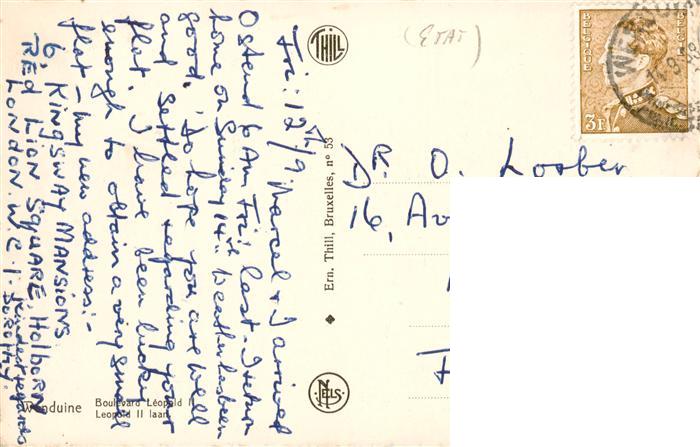 Fri: 12th/9. Marcel & I arrived
Ostend 6 AM Fri: last - I return
home on Sunday 14th. Weather has been
good. Do hope you are well
and settled regarding your
flat. I have been lucky
enough to obtain a very small
flat - my new address:-
6, KINGSWAY MANSIONS
RED LION SQUARE, Holborn
LONDON. W.C.1.
Kindest regards
DOROTHY.
THILL
(ETAT)
BELGIQUE
BELGIE
3F
Ern. Thill, Bruxelles, n° 53
Dr. O. Loober
16, Av
NELS
Wenduine
Boulevard Léopold II
Leopold II laan